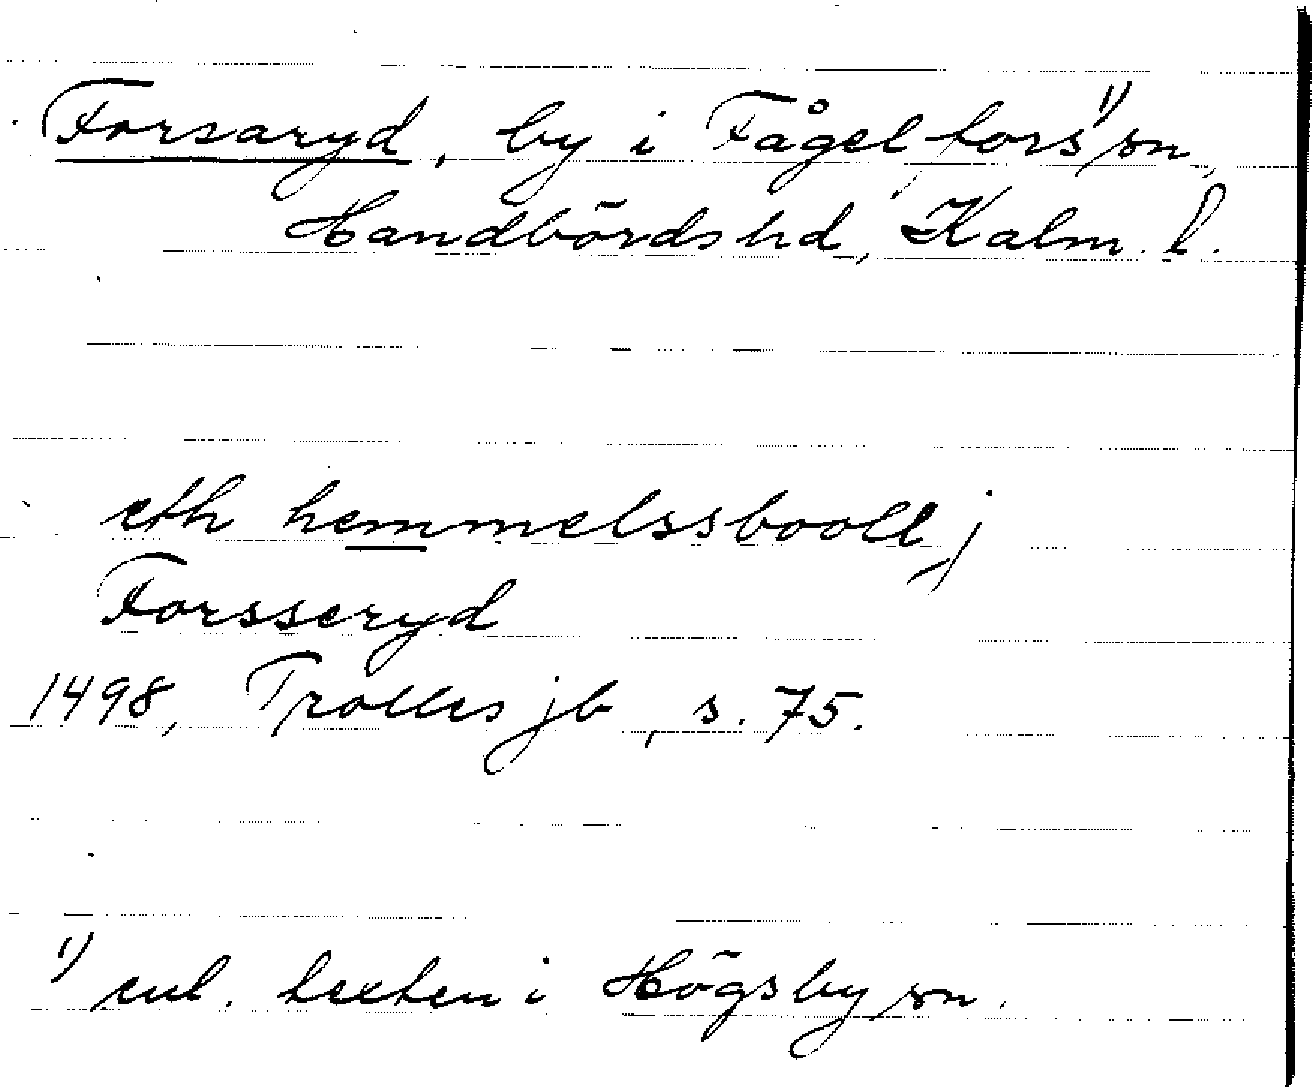 Forsaryd, by i Fågelfors¹⁾ sn,
Handbörds hd, Kalm. l.
eth hemmelssbooll j
Forsseryd
1498, Trolles jb, s. 75.
¹⁾ enl. texten i Högsby sn.